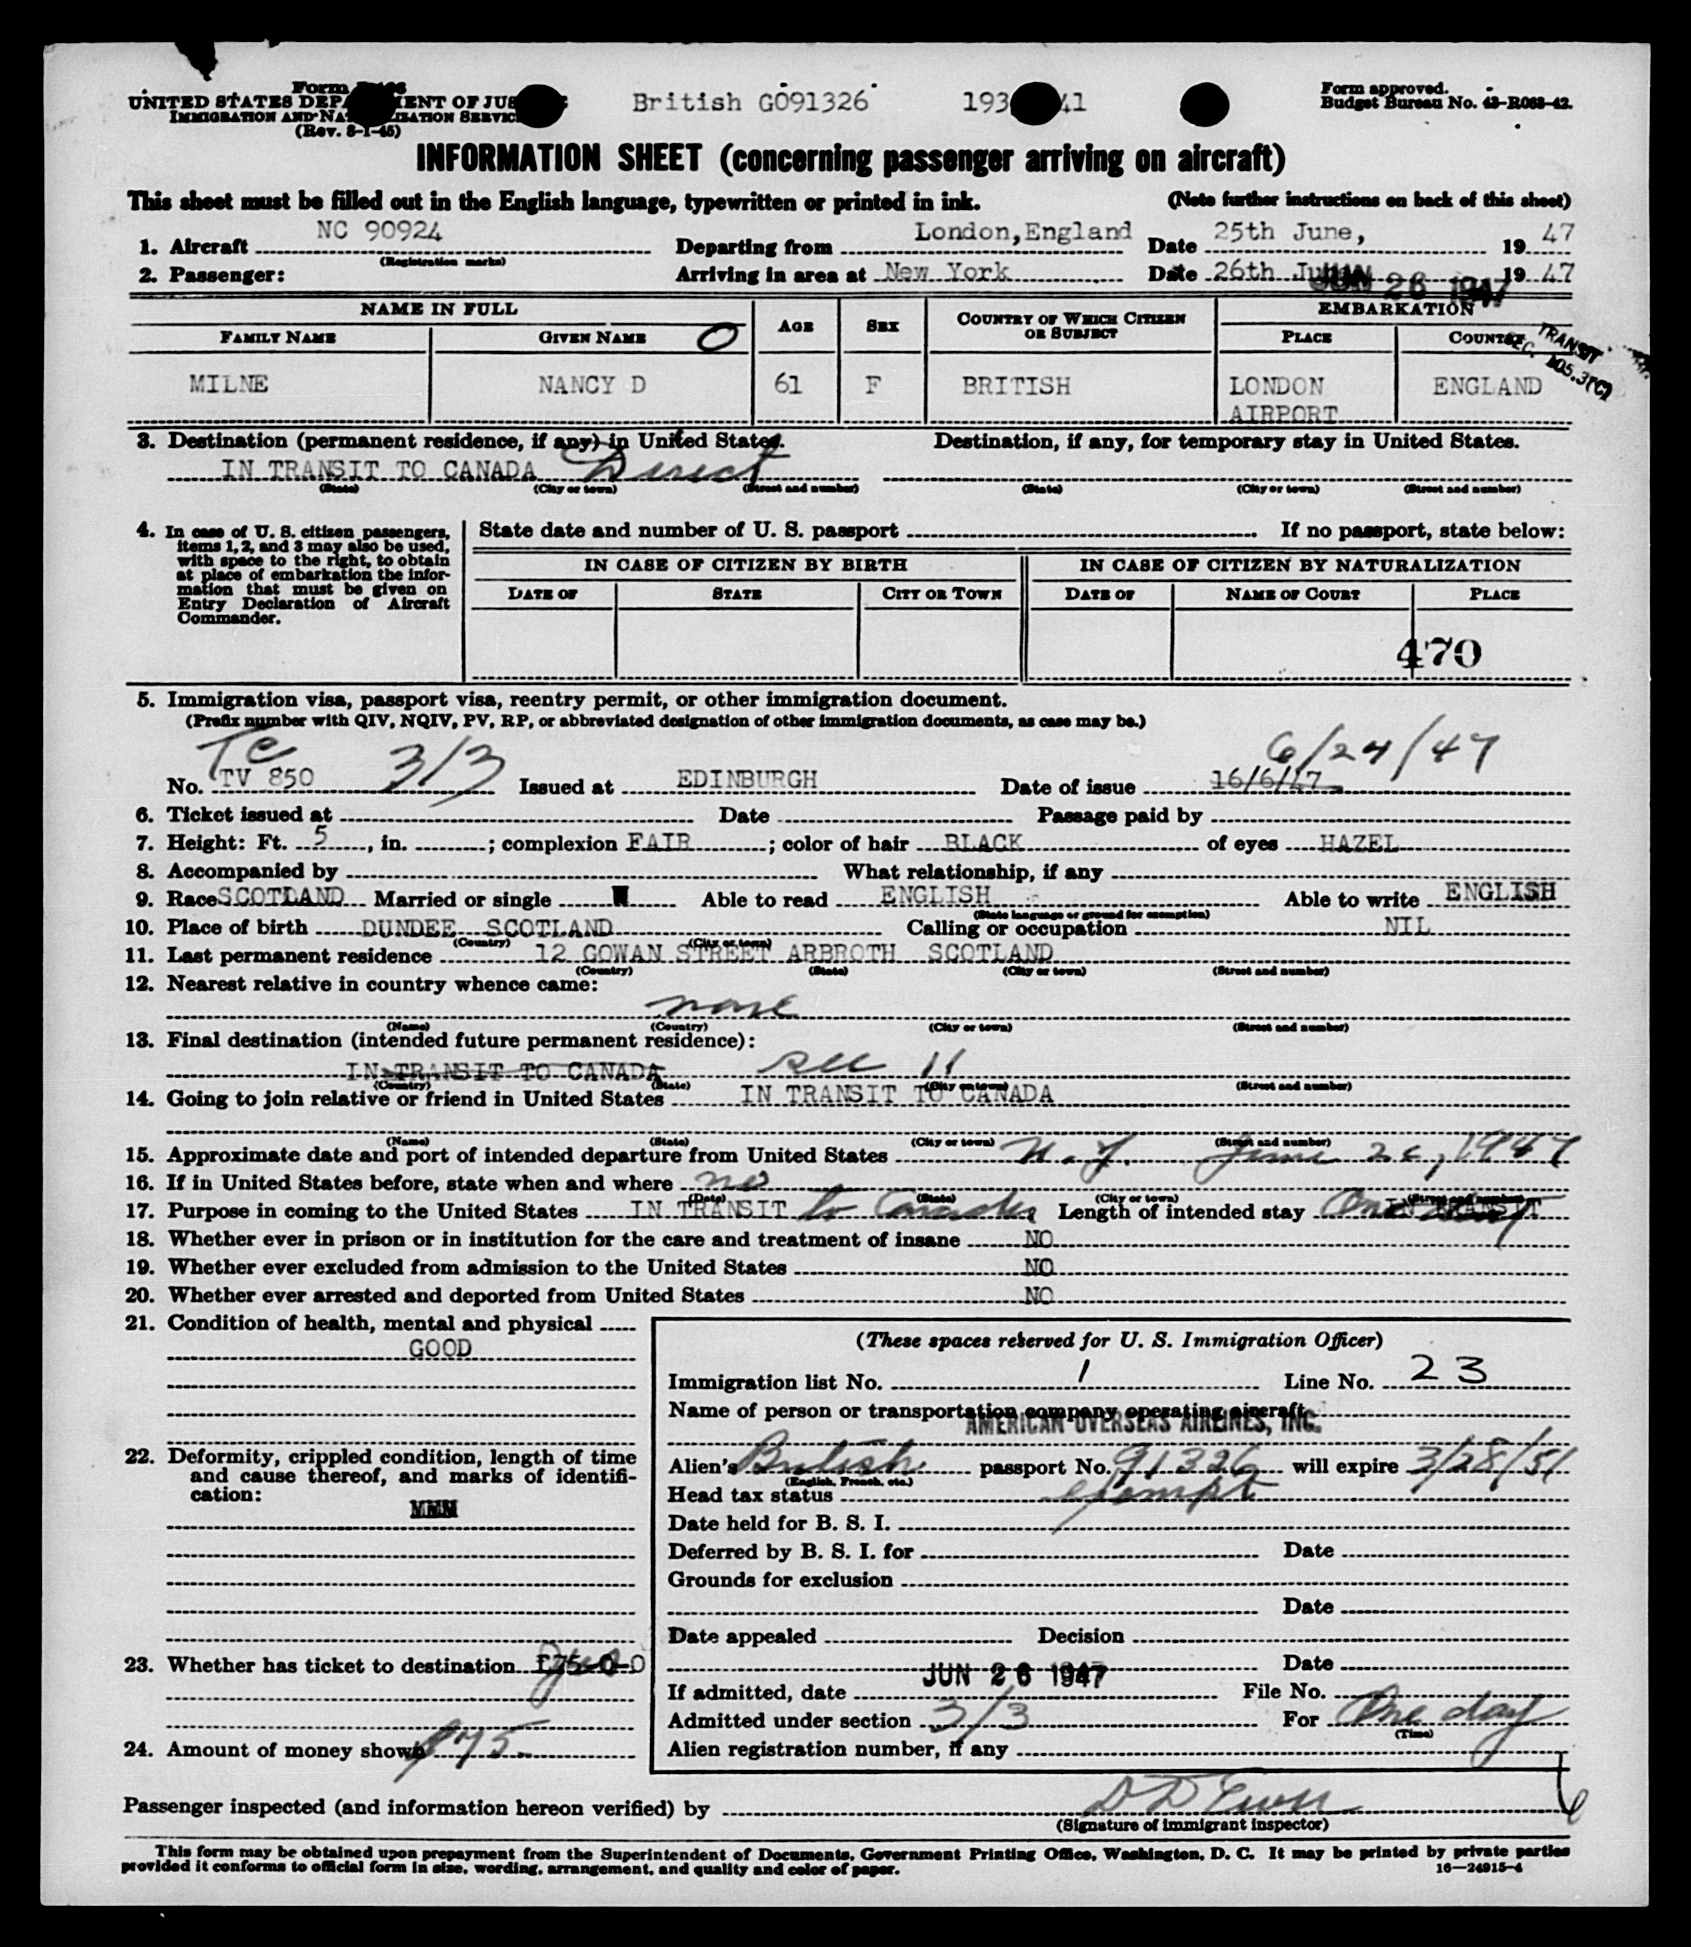 Form
UNITED STATES DEPARTMENT OF JUSTICE British G091326 193 41 Form approved.
IMMIGRATION AND NATURALIZATION SERVICE Budget Bureau No. 43-R083-42.
(Rev. 8-1-45)
INFORMATION SHEET (concerning passenger arriving on aircraft)
This sheet must be filled out in the English language, typewritten or printed in ink. (Note further instructions on back of this sheet)
1. Aircraft NC 90924 Departing from London, England Date 25th June, 19 47
(Registration marks)
2. Passenger: Arriving in area at New York Date 26th June 19 47
JUN 26 1947
NAME IN FULL AGE SEX COUNTRY OF WHICH CITIZEN OR SUBJECT EMBARKATION
FAMILY NAME GIVEN NAME O PLACE COUNTRY
TRANSIT
SEC. 105.3(C)
MILNE NANCY D 61 F BRITISH LONDON AIRPORT ENGLAND
3. Destination (permanent residence, if any) in United States. Destination, if any, for temporary stay in United States.
IN TRANSIT TO CANADA Direct
(State) (City or town) (Street and number) (State) (City or town) (Street and number)
4. In case of U. S. citizen passengers, items 1, 2, and 3 may also be used, with space to the right, to obtain at place of embarkation the information that must be given on Entry Declaration of Aircraft Commander.
State date and number of U. S. passport If no passport, state below:
IN CASE OF CITIZEN BY BIRTH IN CASE OF CITIZEN BY NATURALIZATION
DATE OF STATE CITY OR TOWN DATE OF NAME OF COURT PLACE
470
5. Immigration visa, passport visa, reentry permit, or other immigration document.
(Prefix number with QIV, NQIV, PV, RP, or abbreviated designation of other immigration documents, as case may be.)
TC 3/3 6/24/47
No. TV 850 Issued at EDINBURGH Date of issue 16/6/47
6. Ticket issued at Date Passage paid by
7. Height: Ft. 5, in. ; complexion FAIR ; color of hair BLACK of eyes HAZEL
8. Accompanied by What relationship, if any
9. Race SCOTLAND Married or single W Able to read ENGLISH Able to write ENGLISH
(State language or ground for exemption)
10. Place of birth DUNDEE SCOTLAND Calling or occupation NIL
(Country) (City or town)
11. Last permanent residence 12 GOWAN STREET ARBROTH SCOTLAND
(Country) (State) (City or town) (Street and number)
12. Nearest relative in country whence came:
none
(Name) (Country) (City or town) (Street and number)
13. Final destination (intended future permanent residence):
IN TRANSIT TO CANADA see 11
(Country) (State) (City or town) (Street and number)
14. Going to join relative or friend in United States IN TRANSIT TO CANADA
(Name) (State) (City or town) (Street and number)
15. Approximate date and port of intended departure from United States N.Y. June 26, 1947
16. If in United States before, state when and where no
(Date) (State) (City or town) (Street and number)
17. Purpose in coming to the United States IN TRANSIT to Canada Length of intended stay IN TRANSIT One day
18. Whether ever in prison or in institution for the care and treatment of insane NO
19. Whether ever excluded from admission to the United States NO
20. Whether ever arrested and deported from United States NO
21. Condition of health, mental and physical
GOOD
22. Deformity, crippled condition, length of time and cause thereof, and marks of identification:
23. Whether has ticket to destination £75-0-0 yes
24. Amount of money shown $75
(These spaces reserved for U. S. Immigration Officer)
Immigration list No. 1 Line No. 23
Name of person or transportation company operating aircraft
AMERICAN OVERSEAS AIRLINES, INC.
Alien's British passport No. 91326 will expire 3/28/51
(English, French, etc.)
Head tax status exempt
Date held for B. S. I.
Deferred by B. S. I. for Date
Grounds for exclusion
Date
Date appealed Decision
Date
If admitted, date JUN 26 1947 File No.
Admitted under section 3/3 For One day
(Time)
Alien registration number, if any
Passenger inspected (and information hereon verified) by
(Signature of immigrant inspector)
This form may be obtained upon prepayment from the Superintendent of Documents, Government Printing Office, Washington, D. C. It may be printed by private parties
provided it conforms to official form in size, wording, arrangement, and quality and color of paper. 16—24915-4